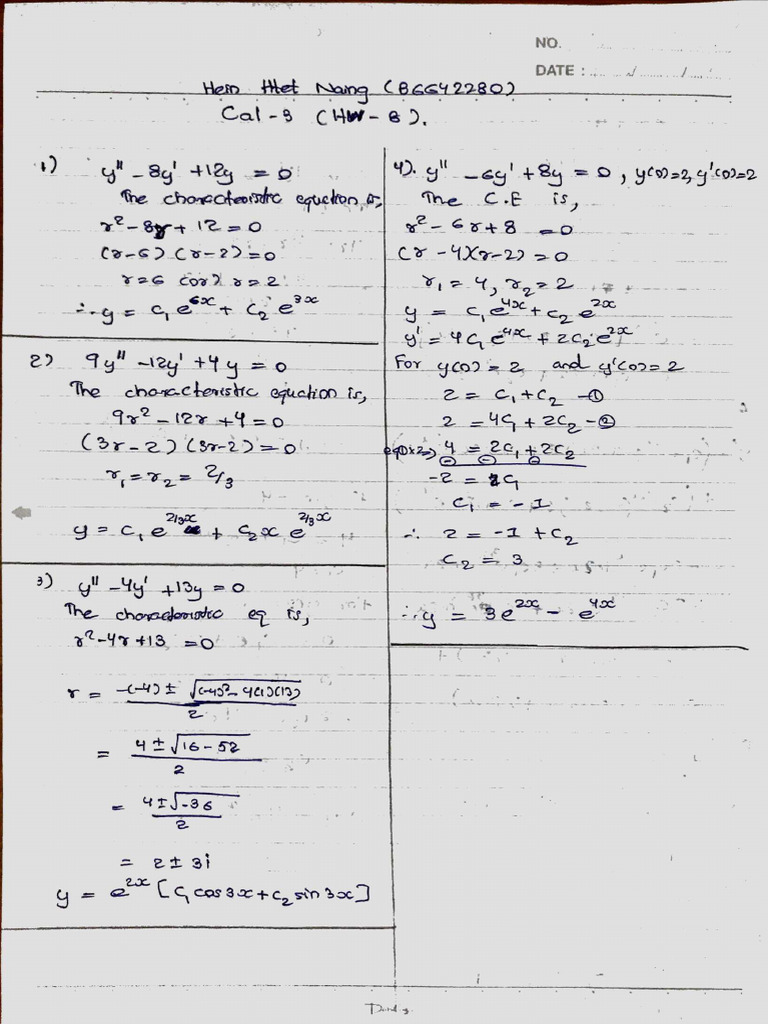 NO.
DATE :
Hein Htet Naing (B6642280)
Cal-3 (HW-8).
1) y'' - 8y' + 12y = 0
The characteristic equation is,
r² - 8r + 12 = 0
(r-6) (r-2) = 0
r=6 (or) r=2
∴ y = c₁e^{6x} + c₂e^{3x}
2) 9y'' - 12y' + 4y = 0
The characteristic equation is,
9r² - 12r + 4 = 0
(3r-2) (3r-2) = 0
r₁ = r₂ = 2/3
y = c₁e^{2/3x} + c₂xe^{2/3x}
3) y'' - 4y' + 13y = 0
The characteristic eq is,
r² - 4r + 13 = 0
r = \frac{-(-4) ± \sqrt{(-4)² - 4(1)(13)}}{2}
= \frac{4 ± \sqrt{16-52}}{2}
= \frac{4 ± \sqrt{-36}}{2}
= 2 ± 3i
y = e^{2x} [c₁cos3x + c₂sin3x]
4). y'' - 6y' + 8y = 0, y(0)=2, y'(0)=2
The C.E is,
r² - 6r + 8 = 0
(r-4)(r-2) = 0
r₁ = 4, r₂ = 2
y = c₁e^{4x} + c₂e^{2x}
y' = 4c₁e^{4x} + 2c₂e^{2x}
For y(0) = 2 and y'(0) = 2
2 = c₁ + c₂ -①
2 = 4c₁ + 2c₂ -②
eq①×2⇒) 4 = 2c₁ + 2c₂
⊖ ⊖ ⊖
-2 = 2c₁
c₁ = -1
∴ 2 = -1 + c₂
c₂ = 3
∴ y = 3e^{2x} - e^{4x}